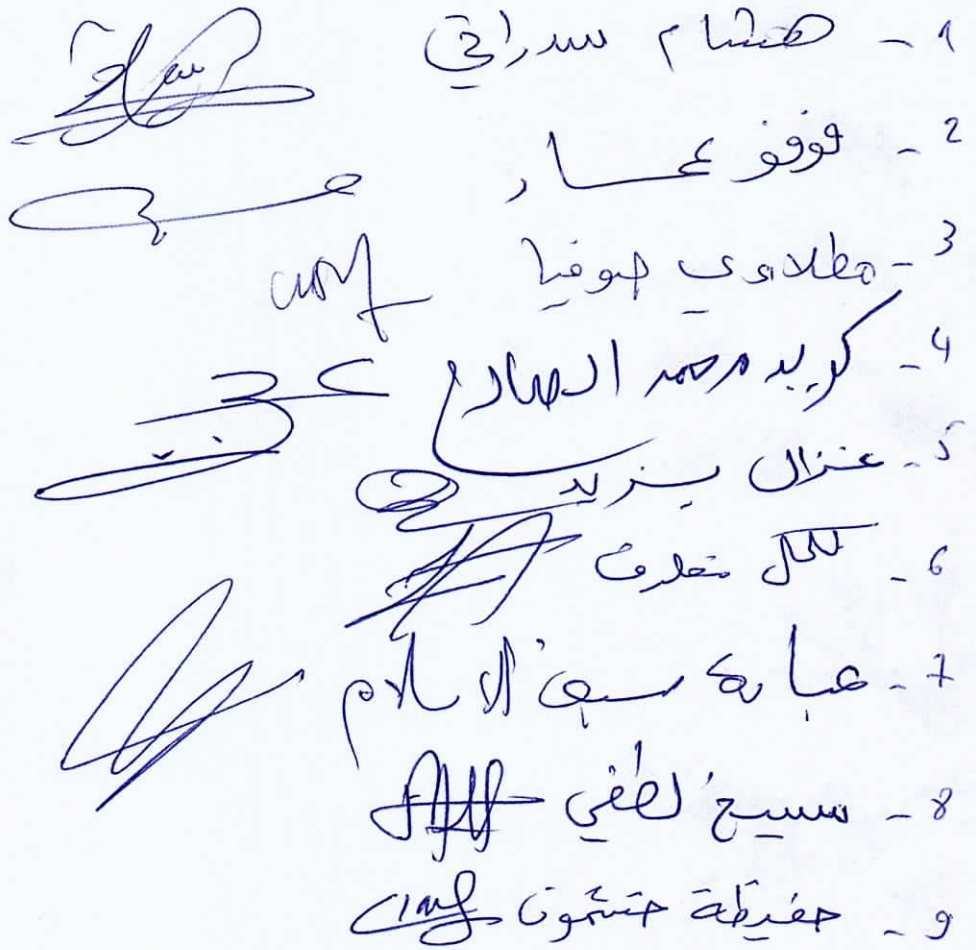 1 - هشام سدراتي
2 - فوفو عماد
3 - مطلاوي صوفيا
4 - كريد محمد الصالح
5 - غزال يزيد
6 - مخلوف
7 - سيف الاسلام
8 - سيح لطفي
9 - حفيظة حتشون